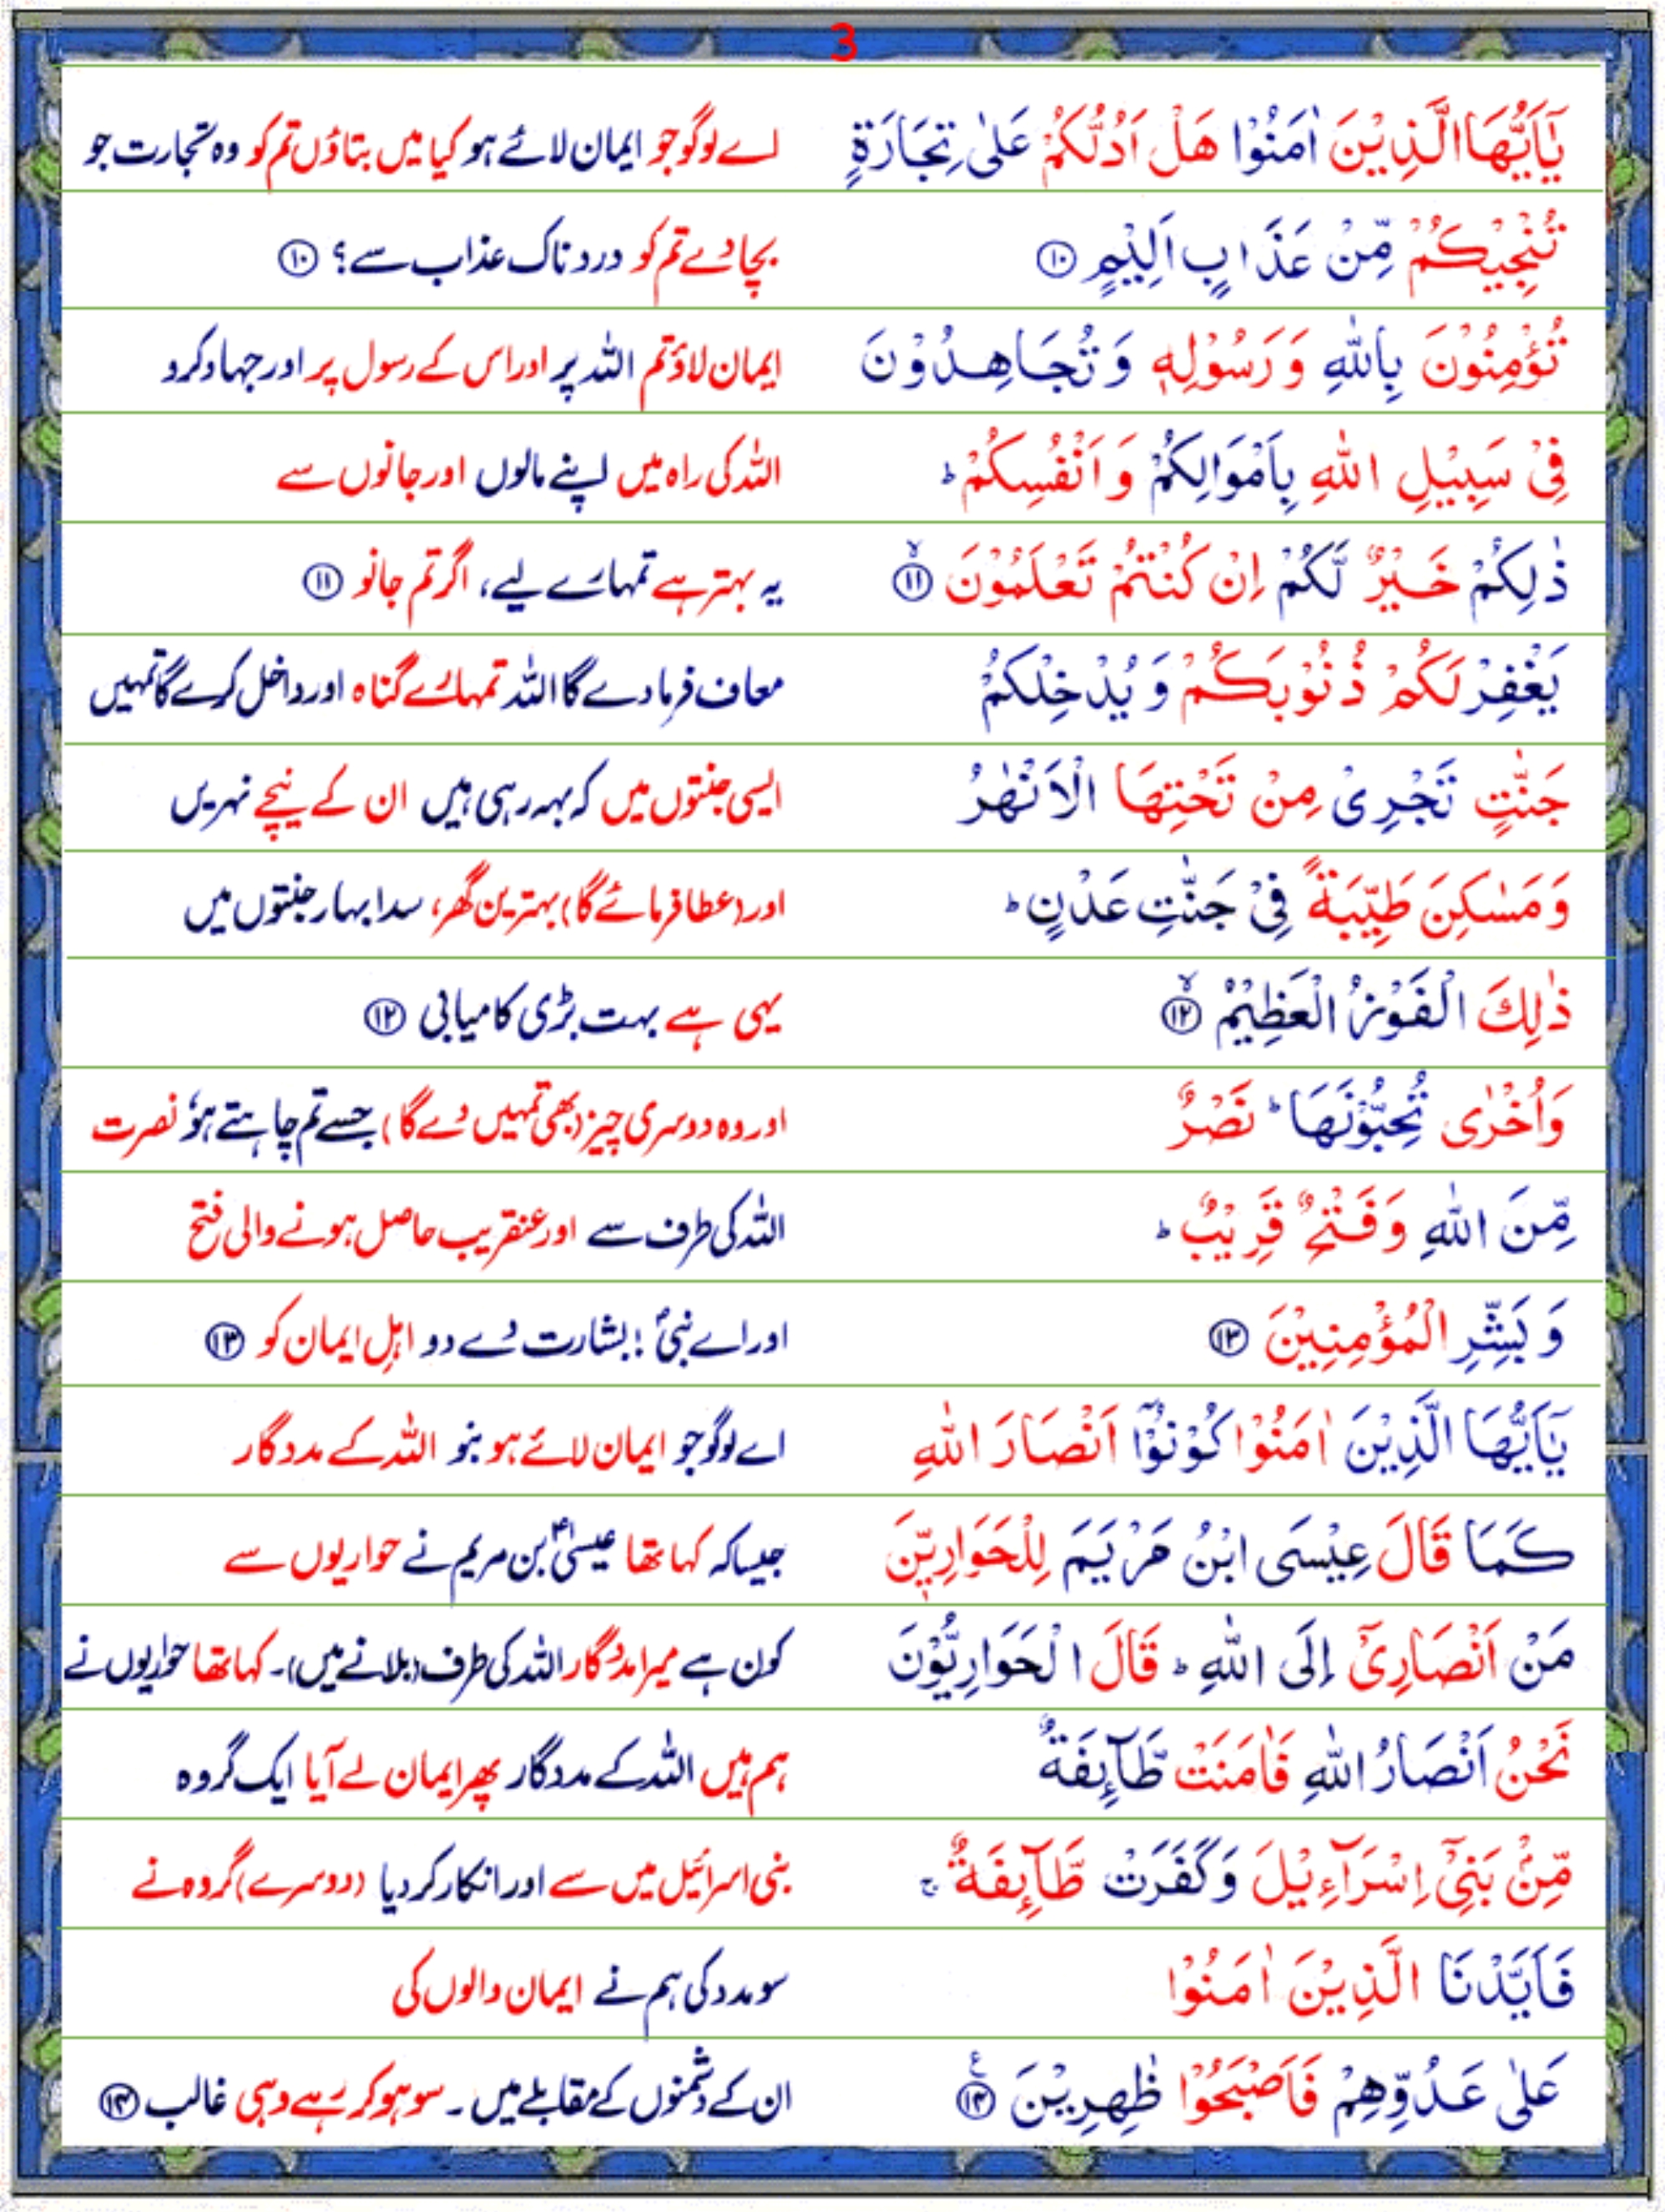 3
يٰۤاَيُّهَا الَّذِيْنَ اٰمَنُوْا هَلْ اَدُلُّكُمْ عَلٰى تِجَارَةٍ اے لوگو جو ایمان لائے ہو کیا میں بتاؤں تم کو وہ تجارت جو
تُنْجِيْكُمْ مِّنْ عَذَابٍ اَلِيْمٍ ۱۰ بچا دے تم کو دردناک عذاب سے؟ ۱۰
تُؤْمِنُوْنَ بِاللّٰهِ وَ رَسُوْلِهٖ وَ تُجَاهِدُوْنَ ایمان لاؤ تم اللہ پر اور اس کے رسول پر اور جہاد کرو
فِيْ سَبِيْلِ اللّٰهِ بِاَمْوَالِكُمْ وَ اَنْفُسِكُمْ ؕ اللہ کی راہ میں اپنے مالوں اور جانوں سے
ذٰلِكُمْ خَيْرٌ لَّكُمْ اِنْ كُنْتُمْ تَعْلَمُوْنَ ۙ ۱۱ یہ بہتر ہے تمہارے لیے، اگر تم جانو ۱۱
يَغْفِرْ لَكُمْ ذُنُوْبَكُمْ وَ يُدْخِلْكُمْ معاف فرما دے گا اللہ تمہارے گناہ اور داخل کرے گا تمہیں
جَنّٰتٍ تَجْرِيْ مِنْ تَحْتِهَا الْاَنْهٰرُ ایسی جنتوں میں کہ بہہ رہی ہیں ان کے نیچے نہریں
وَ مَسٰكِنَ طَيِّبَةً فِيْ جَنّٰتِ عَدْنٍ ؕ اور (عطا فرمائے گا) بہترین گھر، سدا بہار جنتوں میں
ذٰلِكَ الْفَوْزُ الْعَظِيْمُ ۙ ۱۲ یہی ہے بہت بڑی کامیابی ۱۲
وَ اُخْرٰى تُحِبُّوْنَهَا ؕ نَصْرٌ اور وہ دوسری چیز (بھی تمہیں دے گا) جسے تم چاہتے ہو، نصرت
مِّنَ اللّٰهِ وَ فَتْحٌ قَرِيْبٌ ؕ اللہ کی طرف سے اور عنقریب حاصل ہونے والی فتح
وَ بَشِّرِ الْمُؤْمِنِيْنَ ۱۳ اور اے نبیؐ! بشارت دے دو اہلِ ایمان کو ۱۳
يٰۤاَيُّهَا الَّذِيْنَ اٰمَنُوْا كُوْنُوْۤا اَنْصَارَ اللّٰهِ اے لوگو جو ایمان لائے ہو بنو اللہ کے مددگار
كَمَا قَالَ عِيْسَى ابْنُ مَرْيَمَ لِلْحَوَارِيّٖنَ جیسا کہ کہا تھا عیسیٰؑ بن مریم نے حواریوں سے
مَنْ اَنْصَارِيْۤ اِلَى اللّٰهِ ؕ قَالَ الْحَوَارِيُّوْنَ کون ہے میرا مددگار اللہ کی طرف (بلانے میں)۔ کہا تھا حواریوں نے
نَحْنُ اَنْصَارُ اللّٰهِ فَاٰمَنَتْ طَّآىِٕفَةٌ ہم ہیں اللہ کے مددگار پھر ایمان لے آیا ایک گروہ
مِّنْۢ بَنِيْۤ اِسْرَآءِيْلَ وَ كَفَرَتْ طَّآىِٕفَةٌ ۚ بنی اسرائیل میں سے اور انکار کر دیا (دوسرے) گروہ نے
فَاَيَّدْنَا الَّذِيْنَ اٰمَنُوْا سو مدد کی ہم نے ایمان والوں کی
عَلٰى عَدُوِّهِمْ فَاَصْبَحُوْا ظٰهِرِيْنَ ۧ ۱۴ ان کے دشمنوں کے مقابلے میں۔ سو ہو کر رہے وہی غالب ۱۴